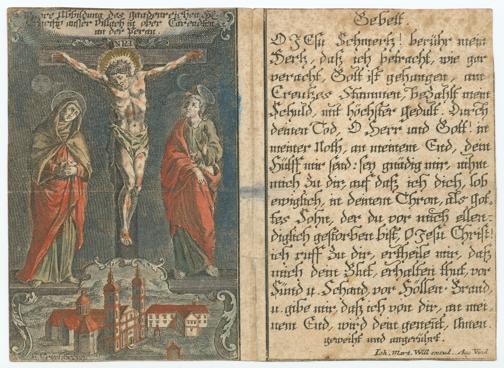 Wahre Abbildung des gnadenreichen Ge-
in ober Carendten
an der Perau.
INRI
Gebett
O JEsu Schmertz! berühr mein
Hertz, daß ich betracht, wie gar
veracht, Gott ist gehangen, am
Creutzes Stammen, bezahlt mein
Schuld, mit höchster gedult. Durch
deinen Tod, O Herr und Gott! in
meiner Noth, an meinem End, dein
Hülff mir send: sey gnädig mir, nihm
mich zu dir auf daß ich dich, lob
ewiglich, in deinem Thron, als Got-
tes Sohn, der du vor mich ellen-
diglich gestorben bist, O JEsu Christ!
ich ruff zu dir, ertheile mir, daß
mich dein Blut, erhalten thut, vor
Sünd u. Schand, vor Höllen-Brand,
u. gibe mir, daß ich von dir, an mei-
nem End, wird dein genent, Amen.
geweiht und angerührt.
Joh. Mart. Will excud. Aug. Vind.